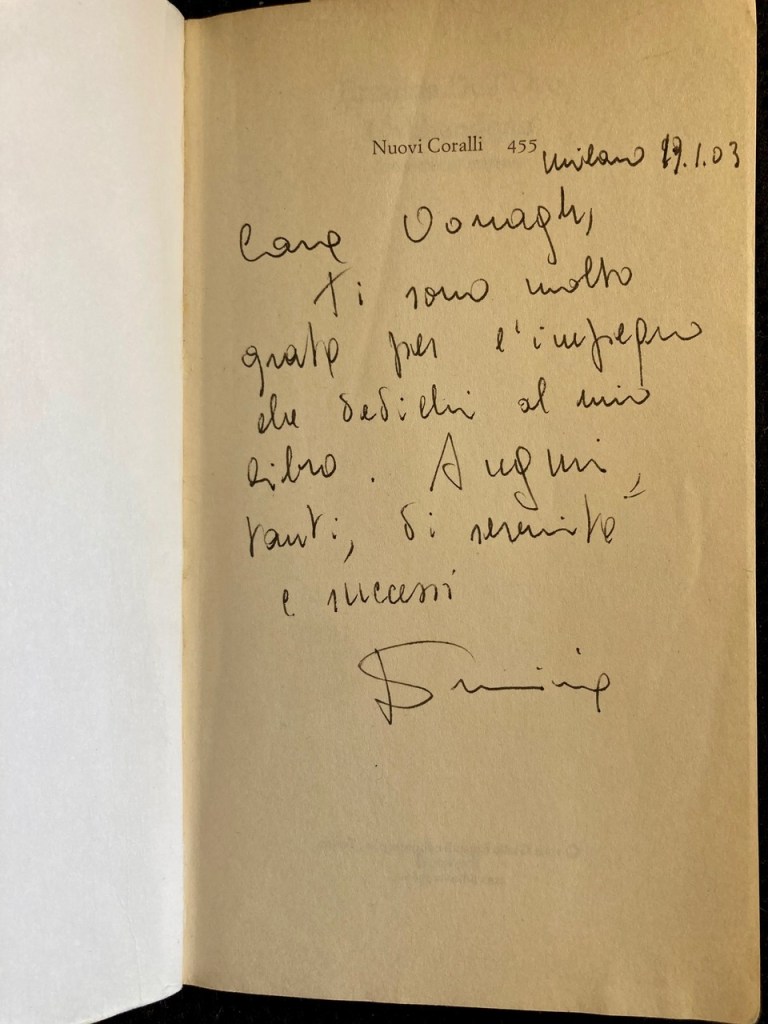 Nuovi Coralli 455
Milano 19.1.03
Cara Oonagh,
ti sono molto
grata per l'impegno
che dedichi al mio
libro. Auguri,
tanti, di serenità
e successi